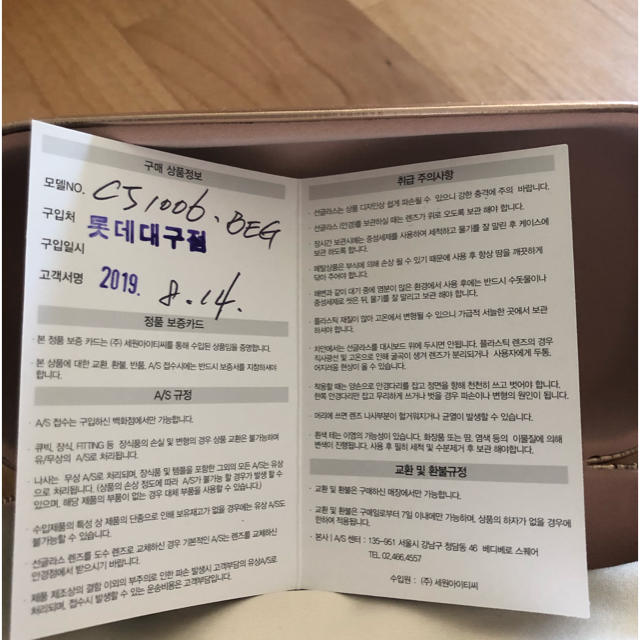 구매 상품정보
모델NO. CJ1006. BEG
구입처 롯데대구점
구입일시
고객서명 2019. 8. 14.
정품 보증카드
· 본 정품 보증 카드는 (주) 세원아이티씨를 통해 수입된 상품임을 증명합니다.
· 본 상품에 대한 교환, 환불, 반품, A/S 접수시에는 반드시 보증서를 지참하셔야
합니다.
A/S 규정
· A/S 접수는 구입하신 백화점에서만 가능합니다.
· 큐빅, 장식, FITTING 등 장식품의 손실 및 변형의 경우 상품 교환은 불가능하며
유/무상의 A/S로 처리됩니다.
· 나사는 무상 A/S로 처리되며, 장식품 및 템플을 포함한 그외의 모든 A/S는 유상
으로 처리됩니다. (상품의 손상 정도에 따라 A/S가 불가능 할 경우가 발생 할 수
있으며, 해당 제품의 부품이 없는 경우 대체 부품을 사용할 수 있습니다.)
· 수입제품의 특성 상 제품의 단종으로 인해 보유재고가 없을 경우에는 유상 A/S도
불가능할 수 있습니다.
· 선글라스 렌즈를 도수 렌즈로 교체하신 경우 기본적인 A/S는 렌즈를 교체하신
안경점에서 받으시기 바랍니다.
· 제품 제조상의 결함 이외의 부주의로 인한 파손 발생시 고객부담의 유상A/S로
처리되며, 접수시 발생할 수 있는 운송비용은 고객부담입니다.
취급 주의사항
· 선글라스는 상품 디자인상 쉽게 파손될 수 있으니 강한 충격에 주의 바랍니다.
· 선글라스 (안경)를 보관하실 때는 렌즈가 위로 오도록 보관 해야 합니다.
· 장시간 보관시에는 중성세제를 사용하여 세척하고 물기를 잘 말린 후 케이스에
보관 하도록 합니다.
· 메탈상품은 부식에 의해 손상 될 수 있기 때문에 사용 후 항상 땀을 깨끗하게
닦아 주어야 합니다.
· 해변과 같이 대기 중에 염분이 많은 환경에서 사용 후에는 반드시 수돗물이나
중성세제로 씻은 뒤, 물기를 잘 말리고 보관 해야 합니다.
· 플라스틱 재질이 많아 고온에서 변형될 수 있으니 가급적 서늘한 곳에서 보관
하셔야 합니다.
· 차안에서는 선글라스를 대시보드 위에 두시면 안됩니다. 플라스틱 렌즈의 경우
직사광선 및 고온으로 인해 굴곡이 생겨 렌즈가 분리되거나 사용자에게 두통,
어지러움 현상이 올 수 있습니다.
· 착용할 때는 양손으로 안경다리를 잡고 정면을 향해 천천히 쓰고 벗어야 합니다.
한쪽 안경다리만 잡고 무리하게 쓰거나 벗을 경우 파손이나 변형의 원인이 됩니다.
· 머리에 쓰면 렌즈 나사부분이 헐거워지거나 균열이 발생할 수 있습니다.
· 흰색 테는 이염의 가능성이 있습니다. 화장품 또는 땀, 염색 등의 이물질에 의해
변색이 진행됩니다. 사용 후 필히 세척 및 수분제거 후 보관 해야합니다.
교환 및 환불규정
· 교환 및 환불은 구매하신 매장에서만 가능합니다.
· 교환 및 환불은 구매일로부터 7일 이내에만 가능하며, 상품의 하자가 없을 경우에
한하여 적용됩니다.
· 본사 | A/S 센터 : 135-951 서울시 강남구 청담동 46 베디베로 스퀘어
TEL 02.466.4557
수입원 : (주) 세원아이티씨